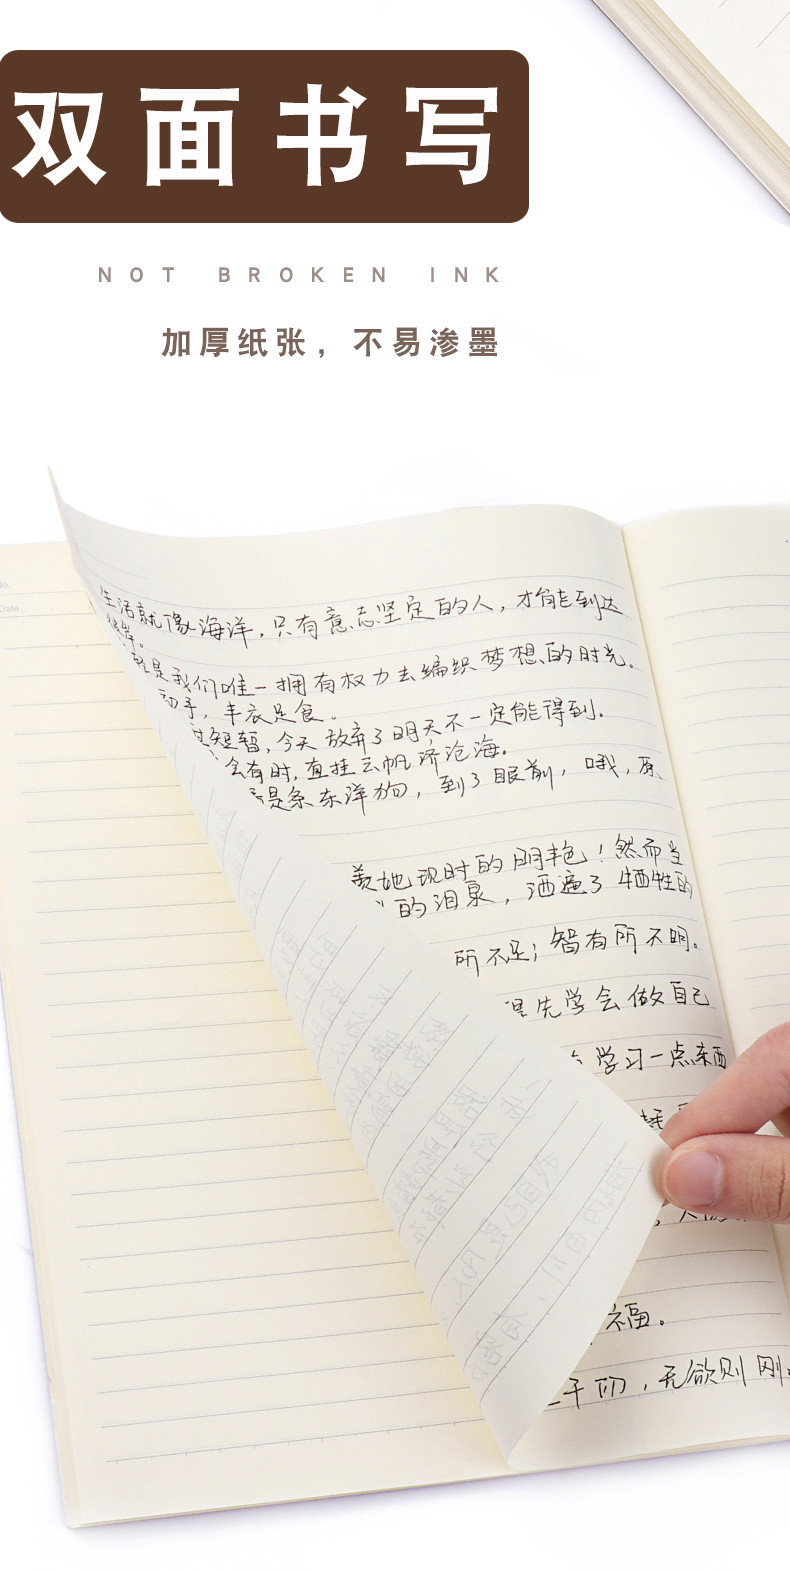 双面书写
NOT BROKEN INK
加厚纸张，不易渗墨
No.
Date
生活就像海洋，只有意志坚定的人，才能到达
彼岸。
是我们唯一拥有权力去编织梦想的时光。
动手，丰衣足食。
短暂，今天放弃了明天不一定能得到.
会有时，直挂云帆济沧海。
是条东洋狗，到了眼前，哦，原
羡她现时的明艳！然而当
的泪泉，洒遍了牺牲的
所不足；智有所不明。
先学会做自己
学习一点东西
福。
千仞，无欲则刚